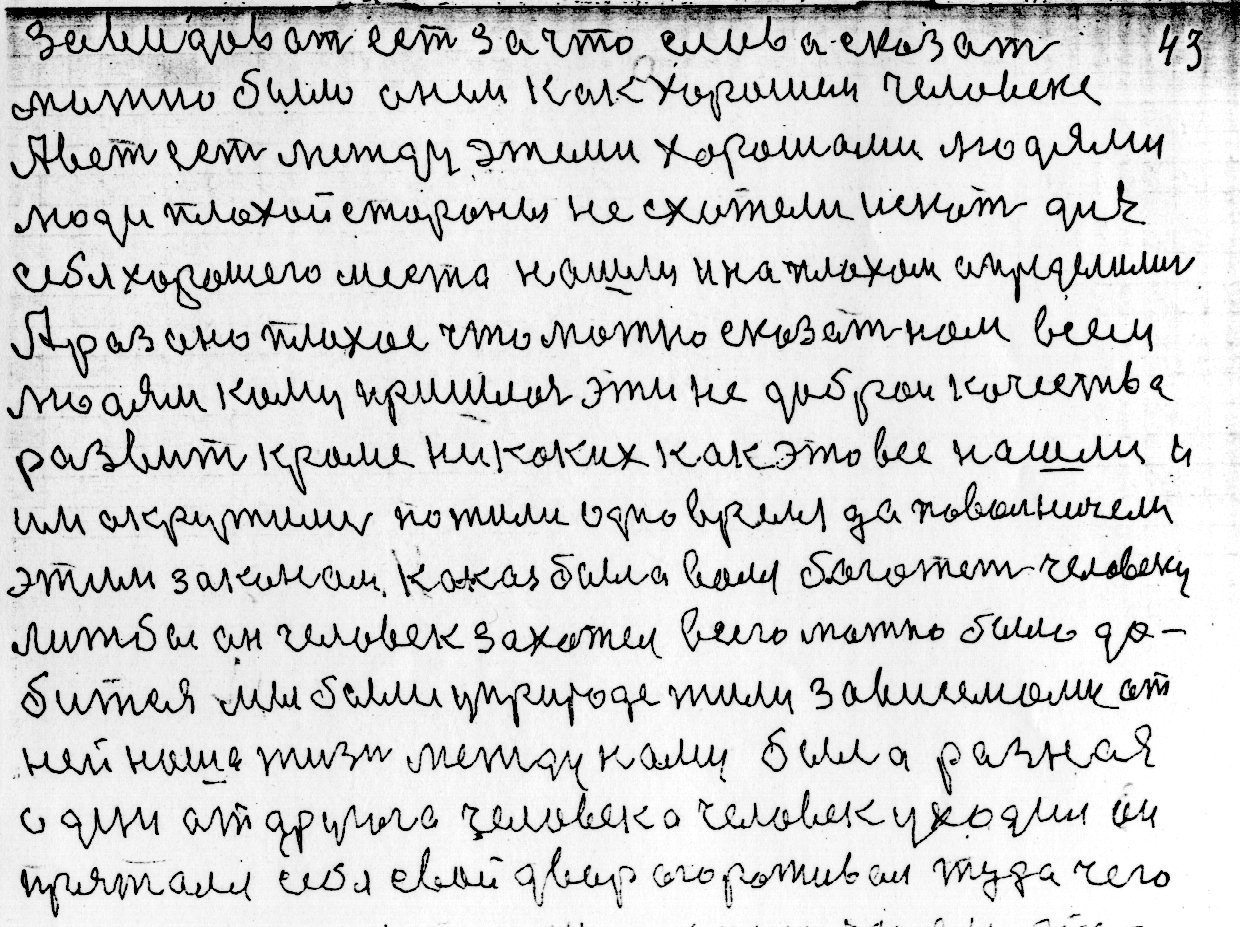 завидоват ест за что слова сказат 43
можно было онем как хорошем человеке
А вот ест между этеми хорошами людями
люди плохой стороны не схотели искат для
себя хорошего места нашли и на плохом определили
А раз оно плохое что можно сказат нам всем
людям кому пришлос эти не доброи качества
развит кроме никоких как это все нашли и
им окружили пожили одно время да поволничели
этим законам. Какая была воля боготет человеку
лит бы он человек захотел всего можно было до-
бится мы были у природе жили зависемоми от
ней наша жизн между нами была разная
один от другога человека человек уходил он
прятался себя свой двор огороживал туда чего